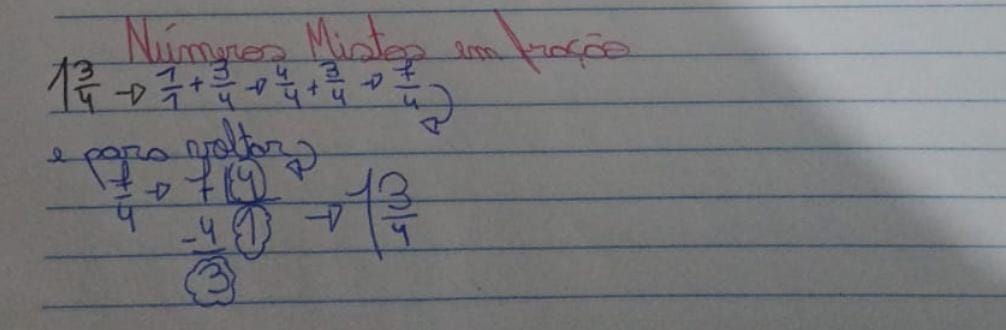 Números Mistos em fração
1 3/4 → 1/1 + 3/4 → 4/4 + 3/4 → 7/4
e para voltar
7/4 → 7 4 → 1 3/4
-4 1
3